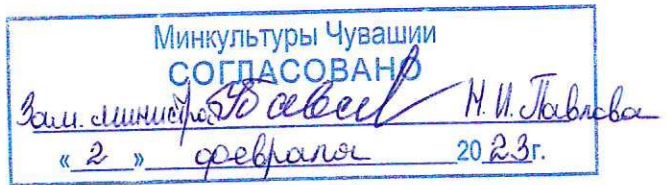 Минкультуры Чувашии
СОГЛАСОВАНО
Зам. министра Н.И. Павлова
« 2 » февраля 20 23 г.